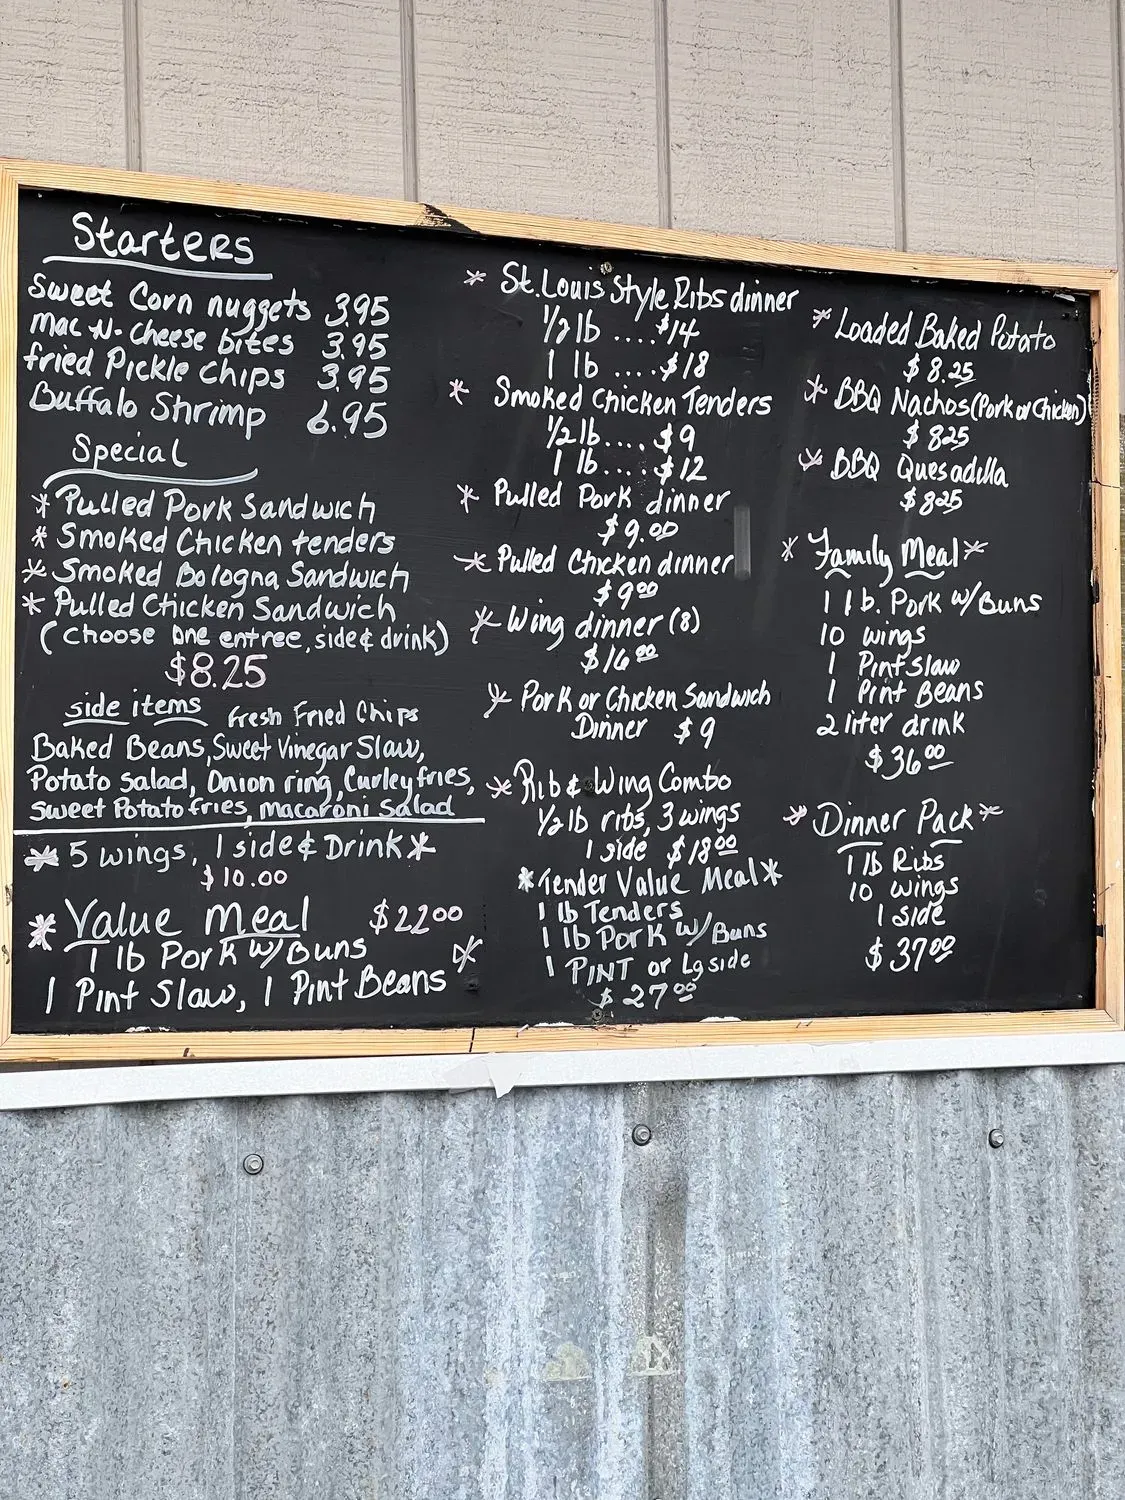 Starters
Sweet Corn nuggets 3.95
Mac-N-Cheese bites 3.95
fried Pickle Chips 3.95
Buffalo Shrimp 6.95
Special
* Pulled Pork Sandwich
* Smoked Chicken tenders
* Smoked Bologna Sandwich
* Pulled Chicken Sandwich
(choose one entree, side & drink)
$8.25
side items Fresh Fried Chips
Baked Beans, Sweet Vinegar Slaw,
Potato Salad, Onion ring, Curley fries,
Sweet Potato fries, macaroni Salad
* 5 wings, 1 side & Drink *
$10.00
* Value Meal $22.00
1 lb Pork w/Buns *
1 Pint Slaw, 1 Pint Beans
* St. Louis Style Ribs dinner
1/2 lb .... $14
1 lb .... $18
* Smoked Chicken Tenders
1/2 lb.... $9
1 lb.... $12
* Pulled Pork dinner
$9.00
* Pulled Chicken dinner
$9.00
* Wing dinner (8)
$16.00
* Pork or Chicken Sandwich
Dinner $9
* Rib & Wing Combo
1/2 lb ribs, 3 wings
1 side $18.00
*Tender Value Meal*
1 lb Tenders
1 lb Pork w/Buns
1 PINT or Lg side
$27.00
* Loaded Baked Potato
$8.25
* BBQ Nachos (Pork or Chicken)
$825
* BBQ Quesadilla
$825
* Family Meal *
1 lb. Pork w/Buns
10 wings
1 Pint Slaw
1 Pint Beans
2 liter drink
$36.00
* Dinner Pack *
1 lb Ribs
10 wings
1 side
$37.00